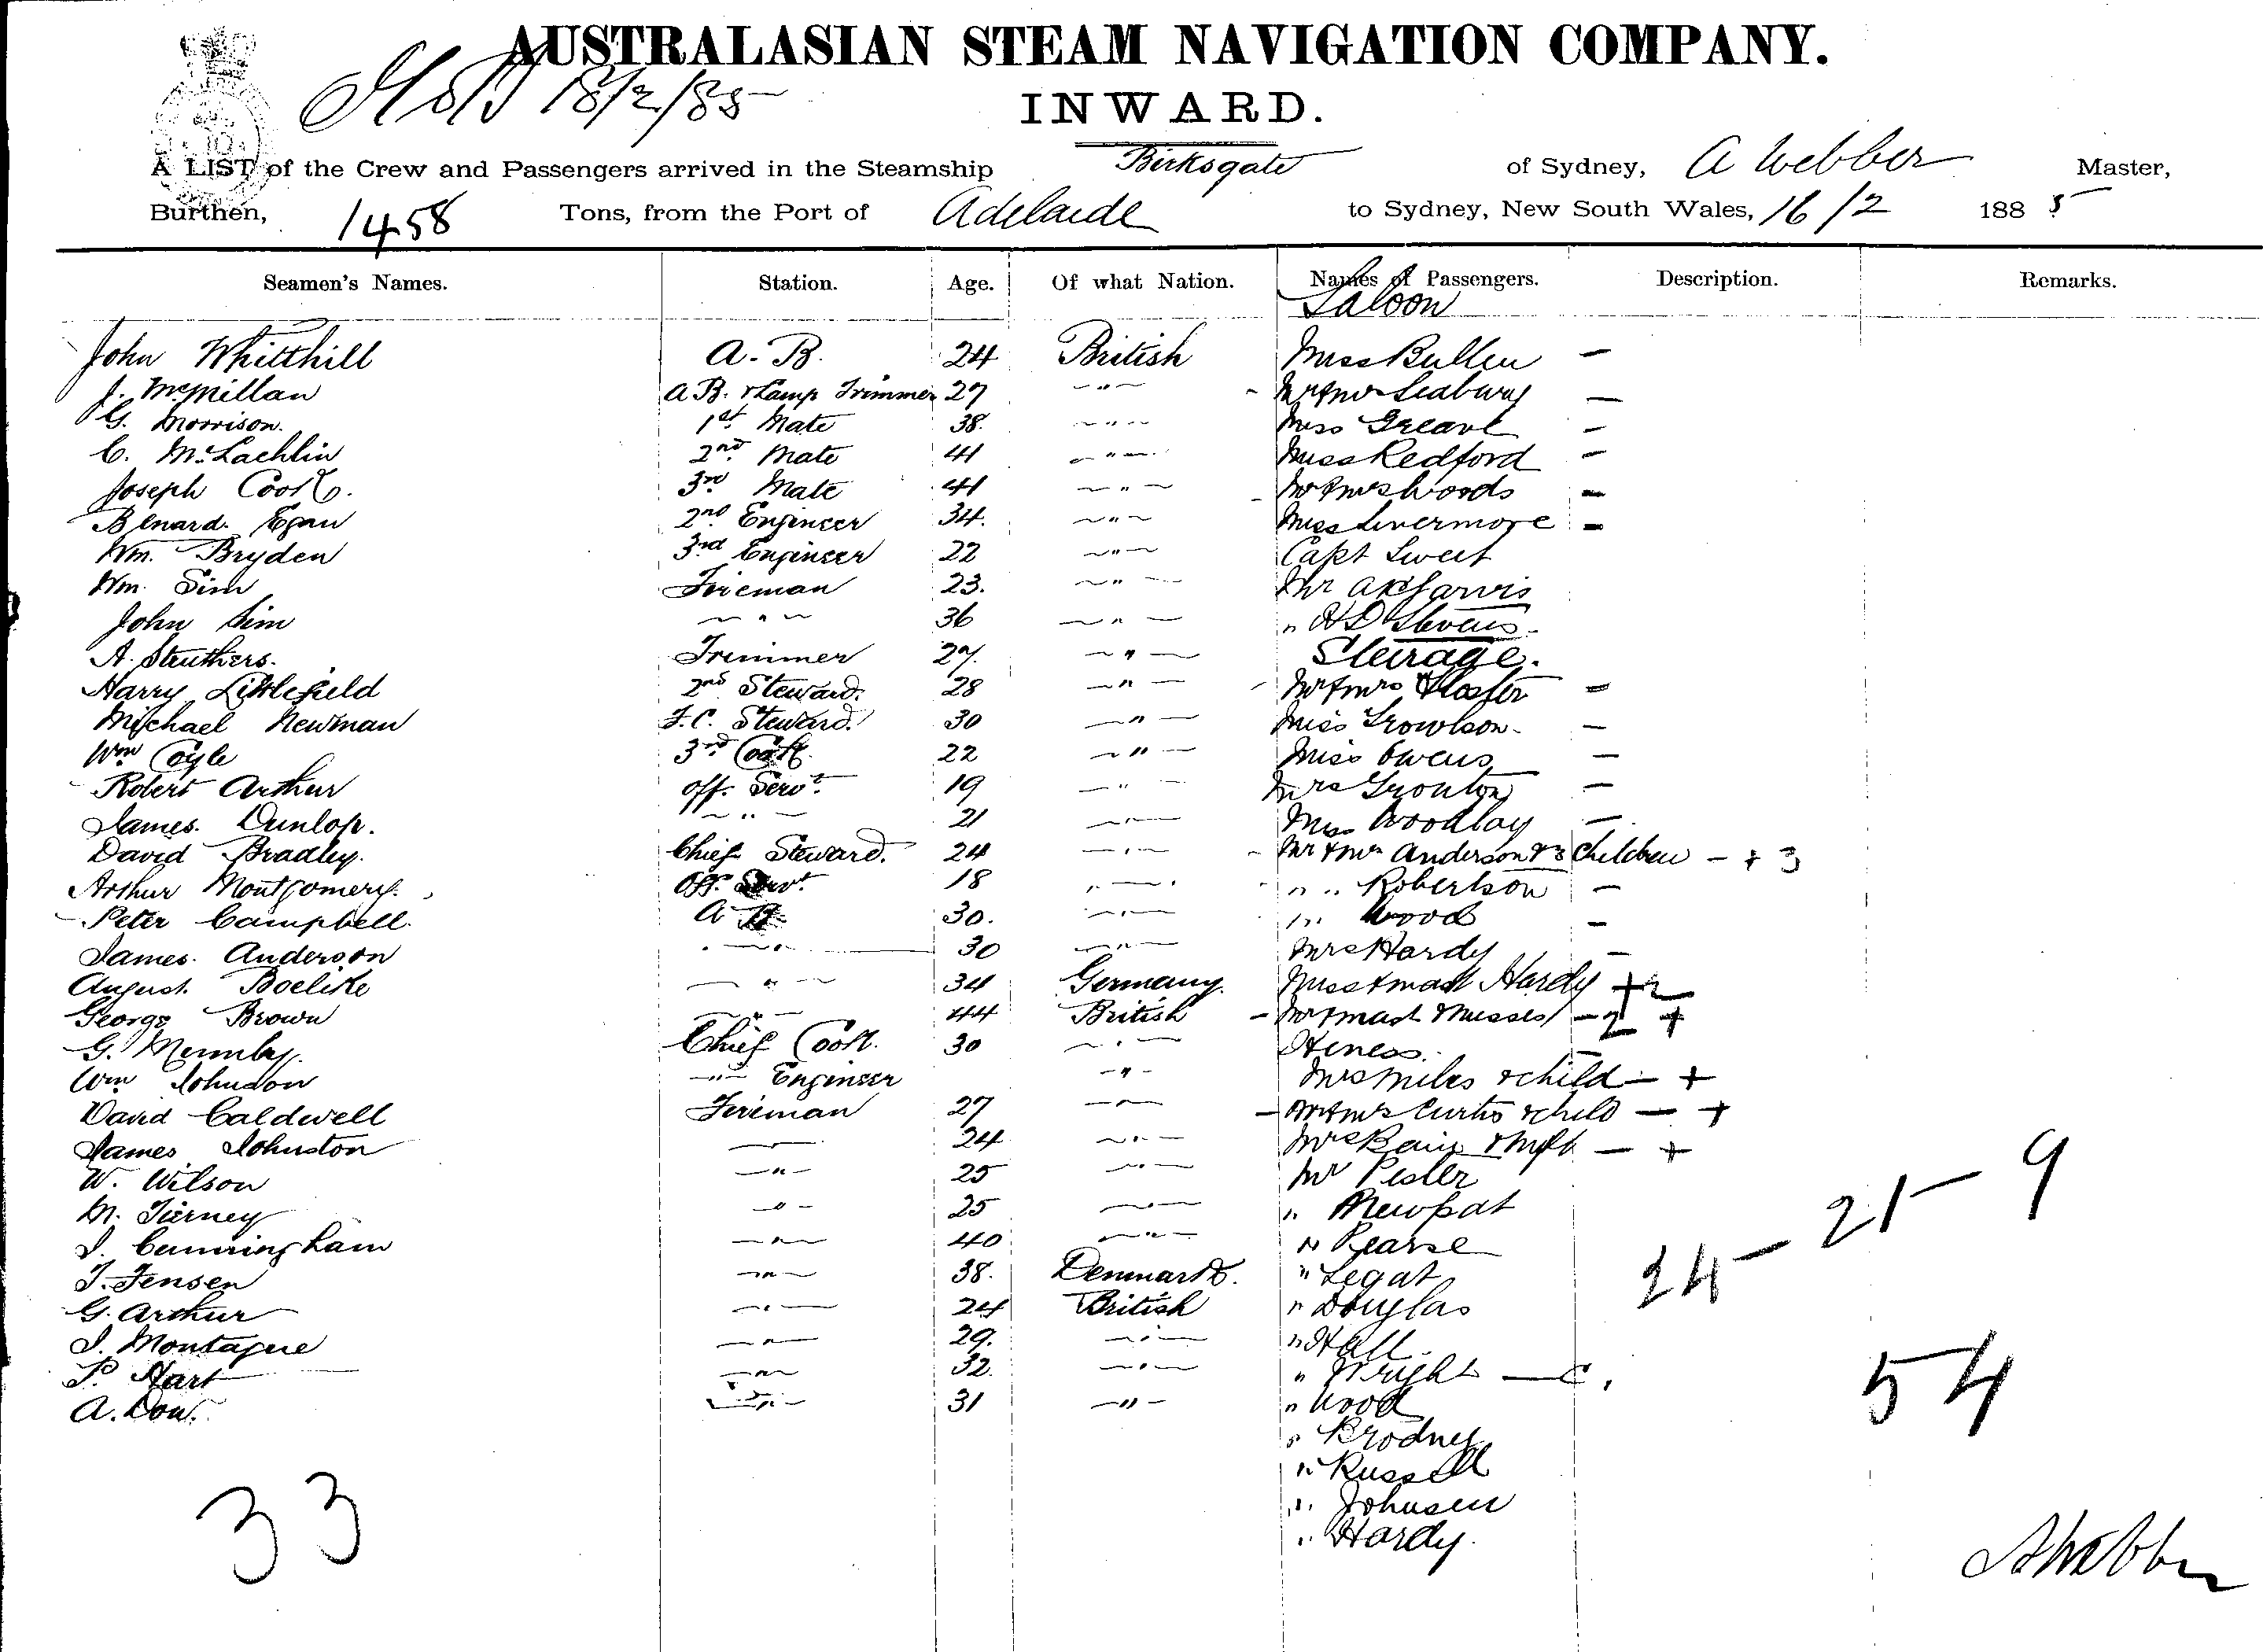 AUSTRALASIAN STEAM NAVIGATION COMPANY.
18/2/85
INWARD.
A LIST of the Crew and Passengers arrived in the Steamship Birksgate of Sydney, A Webber Master,
Burthen, 1458 Tons, from the Port of Adelaide to Sydney, New South Wales, 16/2 1885
Seamen's Names. Station. Age. Of what Nation. Names of Passengers. Description. Remarks.
Saloon
John Whitthill A.B. 24 British Miss Bullen —
J. McMillan A.B. & Lamp Trimmer 27 — " — Mr & Mrs Seabury —
G. Morrison. 1st Mate 38. — " — Miss Greave —
C. McLachlin 2nd Mate 41 — " — Miss Redford —
Joseph Cook. 3rd Mate 41 — " — Mr & Mrs Woods —
Benard. Egan 2nd Engineer 34. — " — Miss Livermore —
Wm. Bryden 3rd Engineer 22 — " — Capt Sweet
Wm. Sim Fireman 23. — " — Mr Jarvis
John Sim — " — 36 — " — " H D Stevens
A. Struthers. Trimmer 27. — " — Steerage.
Harry Littlefield 2nd Steward. 28 — " — Mr & Mrs —
Michael Newman F.C. Steward. 30 — " — Miss Trowlson —
Wm Coyle 3rd Cook. 22 — " — Miss Owens —
Robert Arthur Off. Servt. 19 — " — Mrs —
James. Dunlop. — " — 21 — " — —
David Bradley. Chief Steward. 24 — " — Mr & Mrs Anderson & 3 Children — + 3
Arthur Montgomery. Off. Servt. 18 — " — " " Robertson —
Peter Campbell. A B. 30. — " — " " Wood —
James. Anderson — " — 30 — " — Mrs Hardy —
August. Boelike — " — 34 Germany. Miss & Mast Hardy + 2
George Brown — " — 44 British — Mr & Mast & Misses — 2 +
G. Chief Cook. 30 — " — Heness. —
Wm Johnson — " — Engineer — " — Mrs Miles & child — +
David Caldwell Fireman 27 — " — Mr & Mrs Curtis & child — +
James Johnston — " — 24 — " — Mrs Bain & — +
W. Wilson — " — 25 — " — Mr Pesler
M. Tierney — " — 25 — " — "
J. Cunningham — " — 40 — " — " Pearse
J. Jensen — " — 38. Denmark. " Legat
G. Arthur — " — 24 British " Douglas
J. Montague — " — 29. — " — " Hall
P. Hart — " — 32. — " — " Wright — C.
A. Dow. — " — 31 — " — " Wood
" Brodney
" Russell
" Johnsen
" Hardy.
24 — 21 — 9
54
33
A Webber